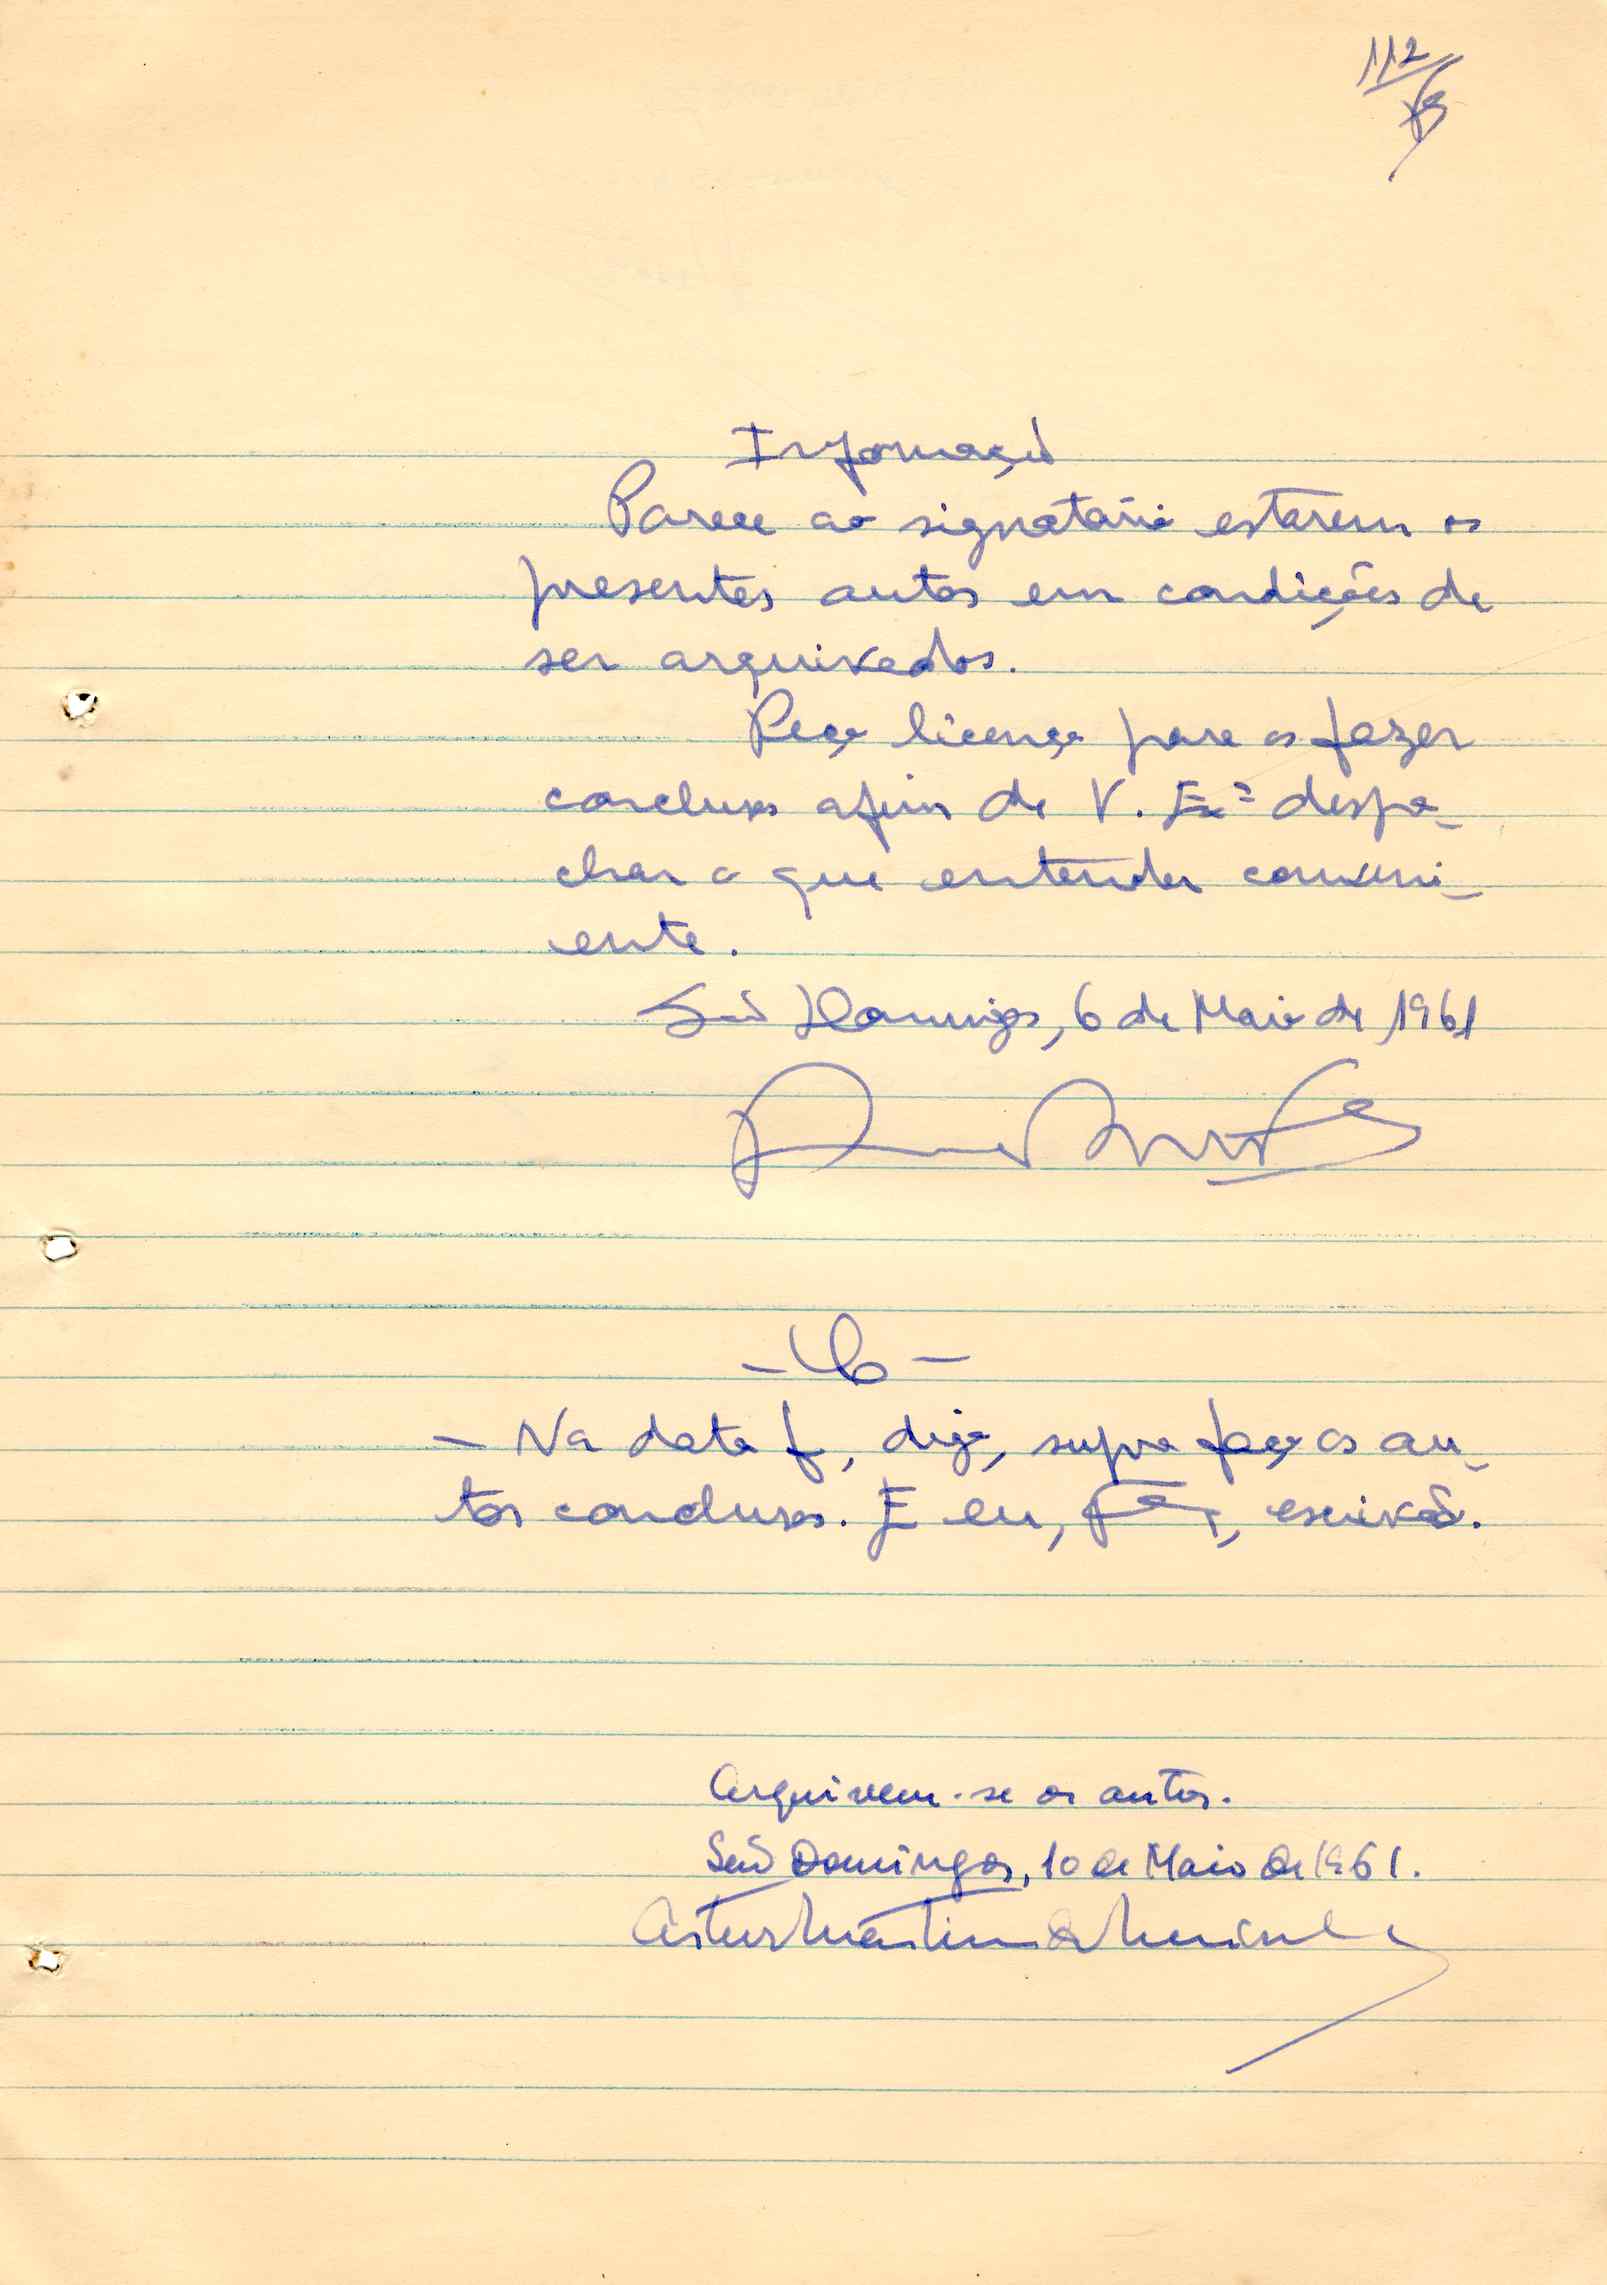 112
Informação
Parece ao signatário estarem os
presentes autos em condições de
ser arquivados.
Peço licença para os fazer
conclusos afim de V. Exª despa-
char o que entender conveni-
ente.
São Domingos, 6 de Maio de 1961
- Na data f, digo, supra faço os au-
tos conclusos. E eu, escrivão.
Arquivem-se os autos.
São Domingos, 10 de Maio de 1961.
Artur Martins de